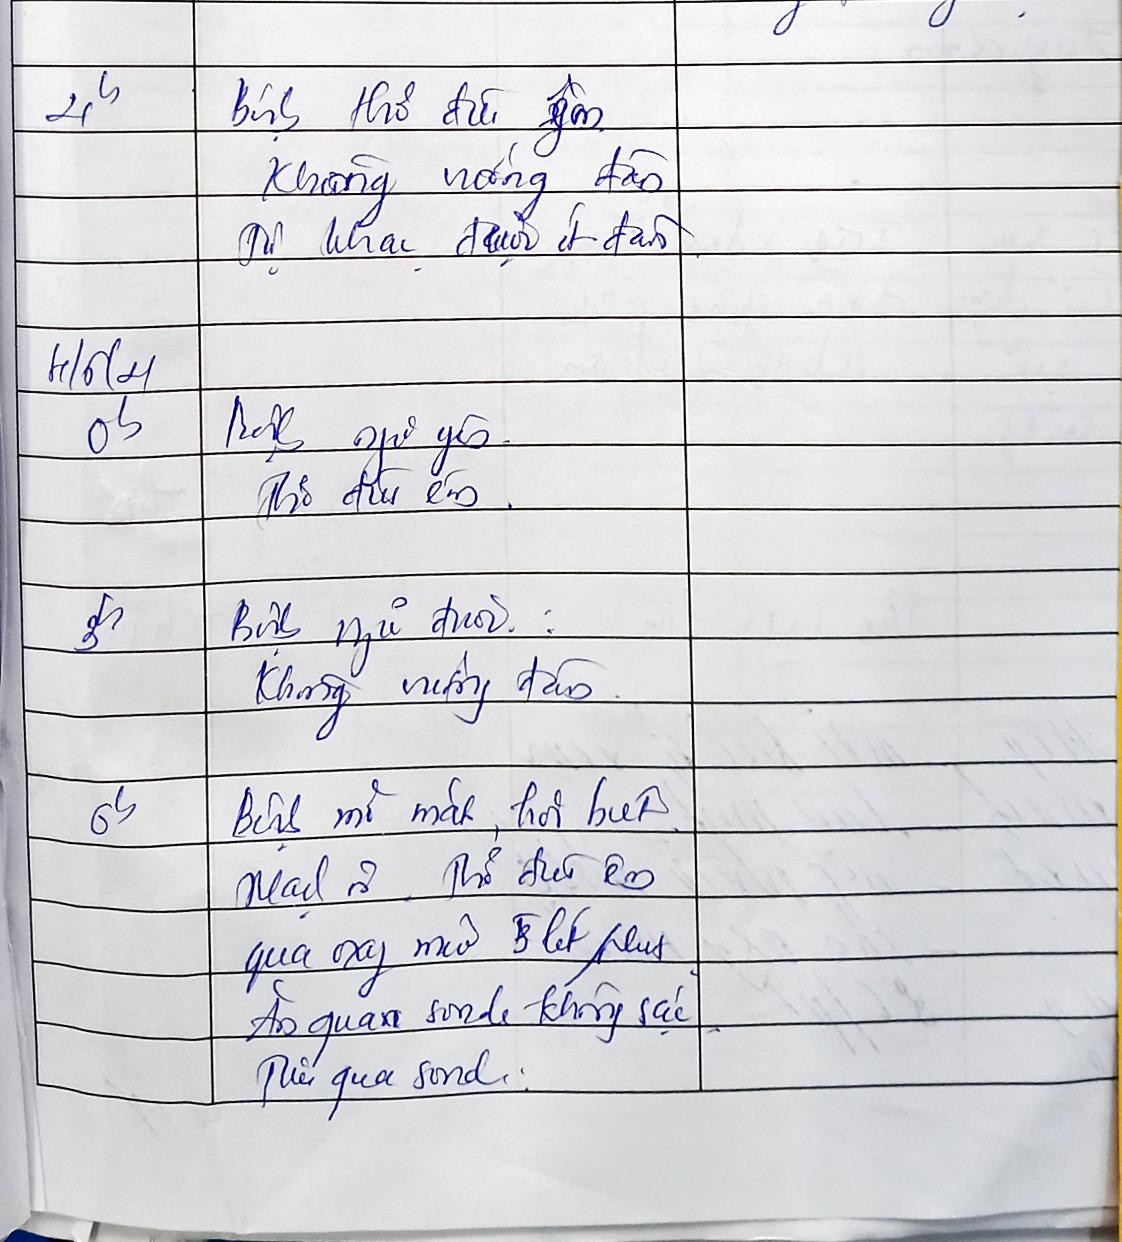 21h Bệnh thở đều êm
Không vướng đàm
Tự khạc được ít đàm
4/5/21
0h Bệnh ngủ yên.
Thở đều êm.
3h Bệnh ngủ được.
Không vướng đàm.
6h Bệnh mở mắt, hơi biết
Mạch rõ. Thở đều êm
qua oxy mũi 5 lít/phut
Ăn quan sonde không sặc.
Tiểu qua sond.